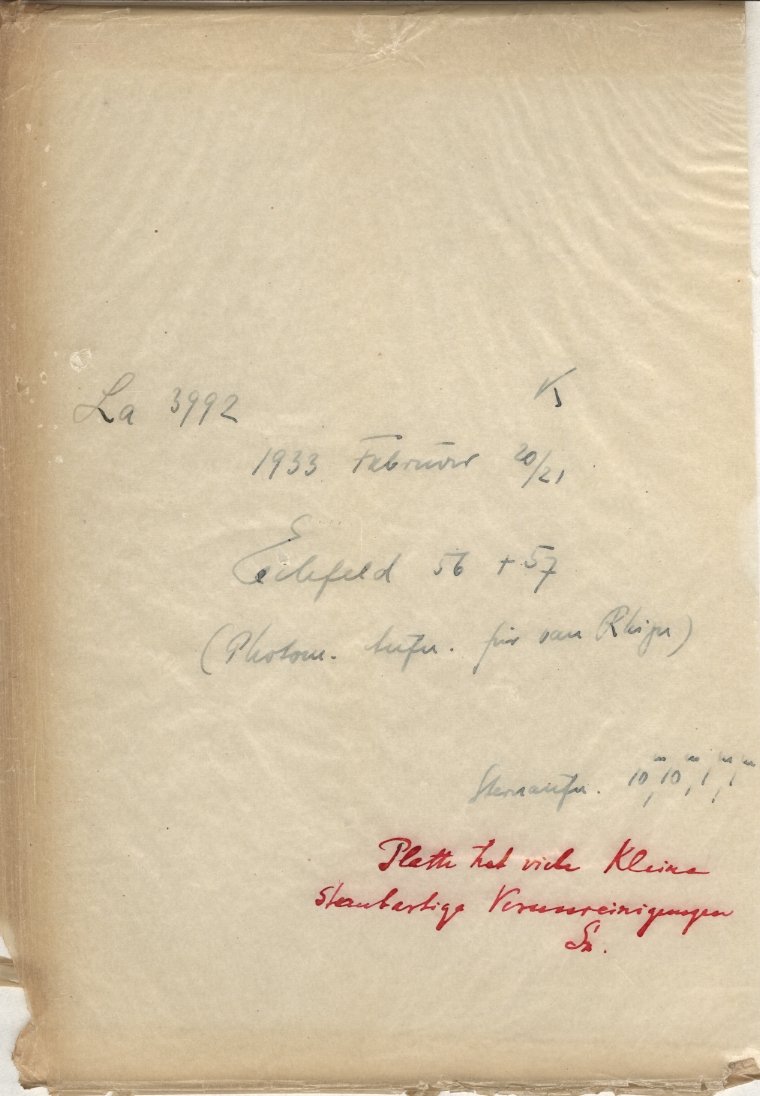 La 3992 K
1933 Februar 20/21
Eichfeld 56 + 57
(Photom. Aufn. für van Rhijn)
Sternaufn. 10ᵐ, 10ᵐ, 1ᵐ, 1ᵐ
Platte hat viele kleine
sternartige Verunreinigungen